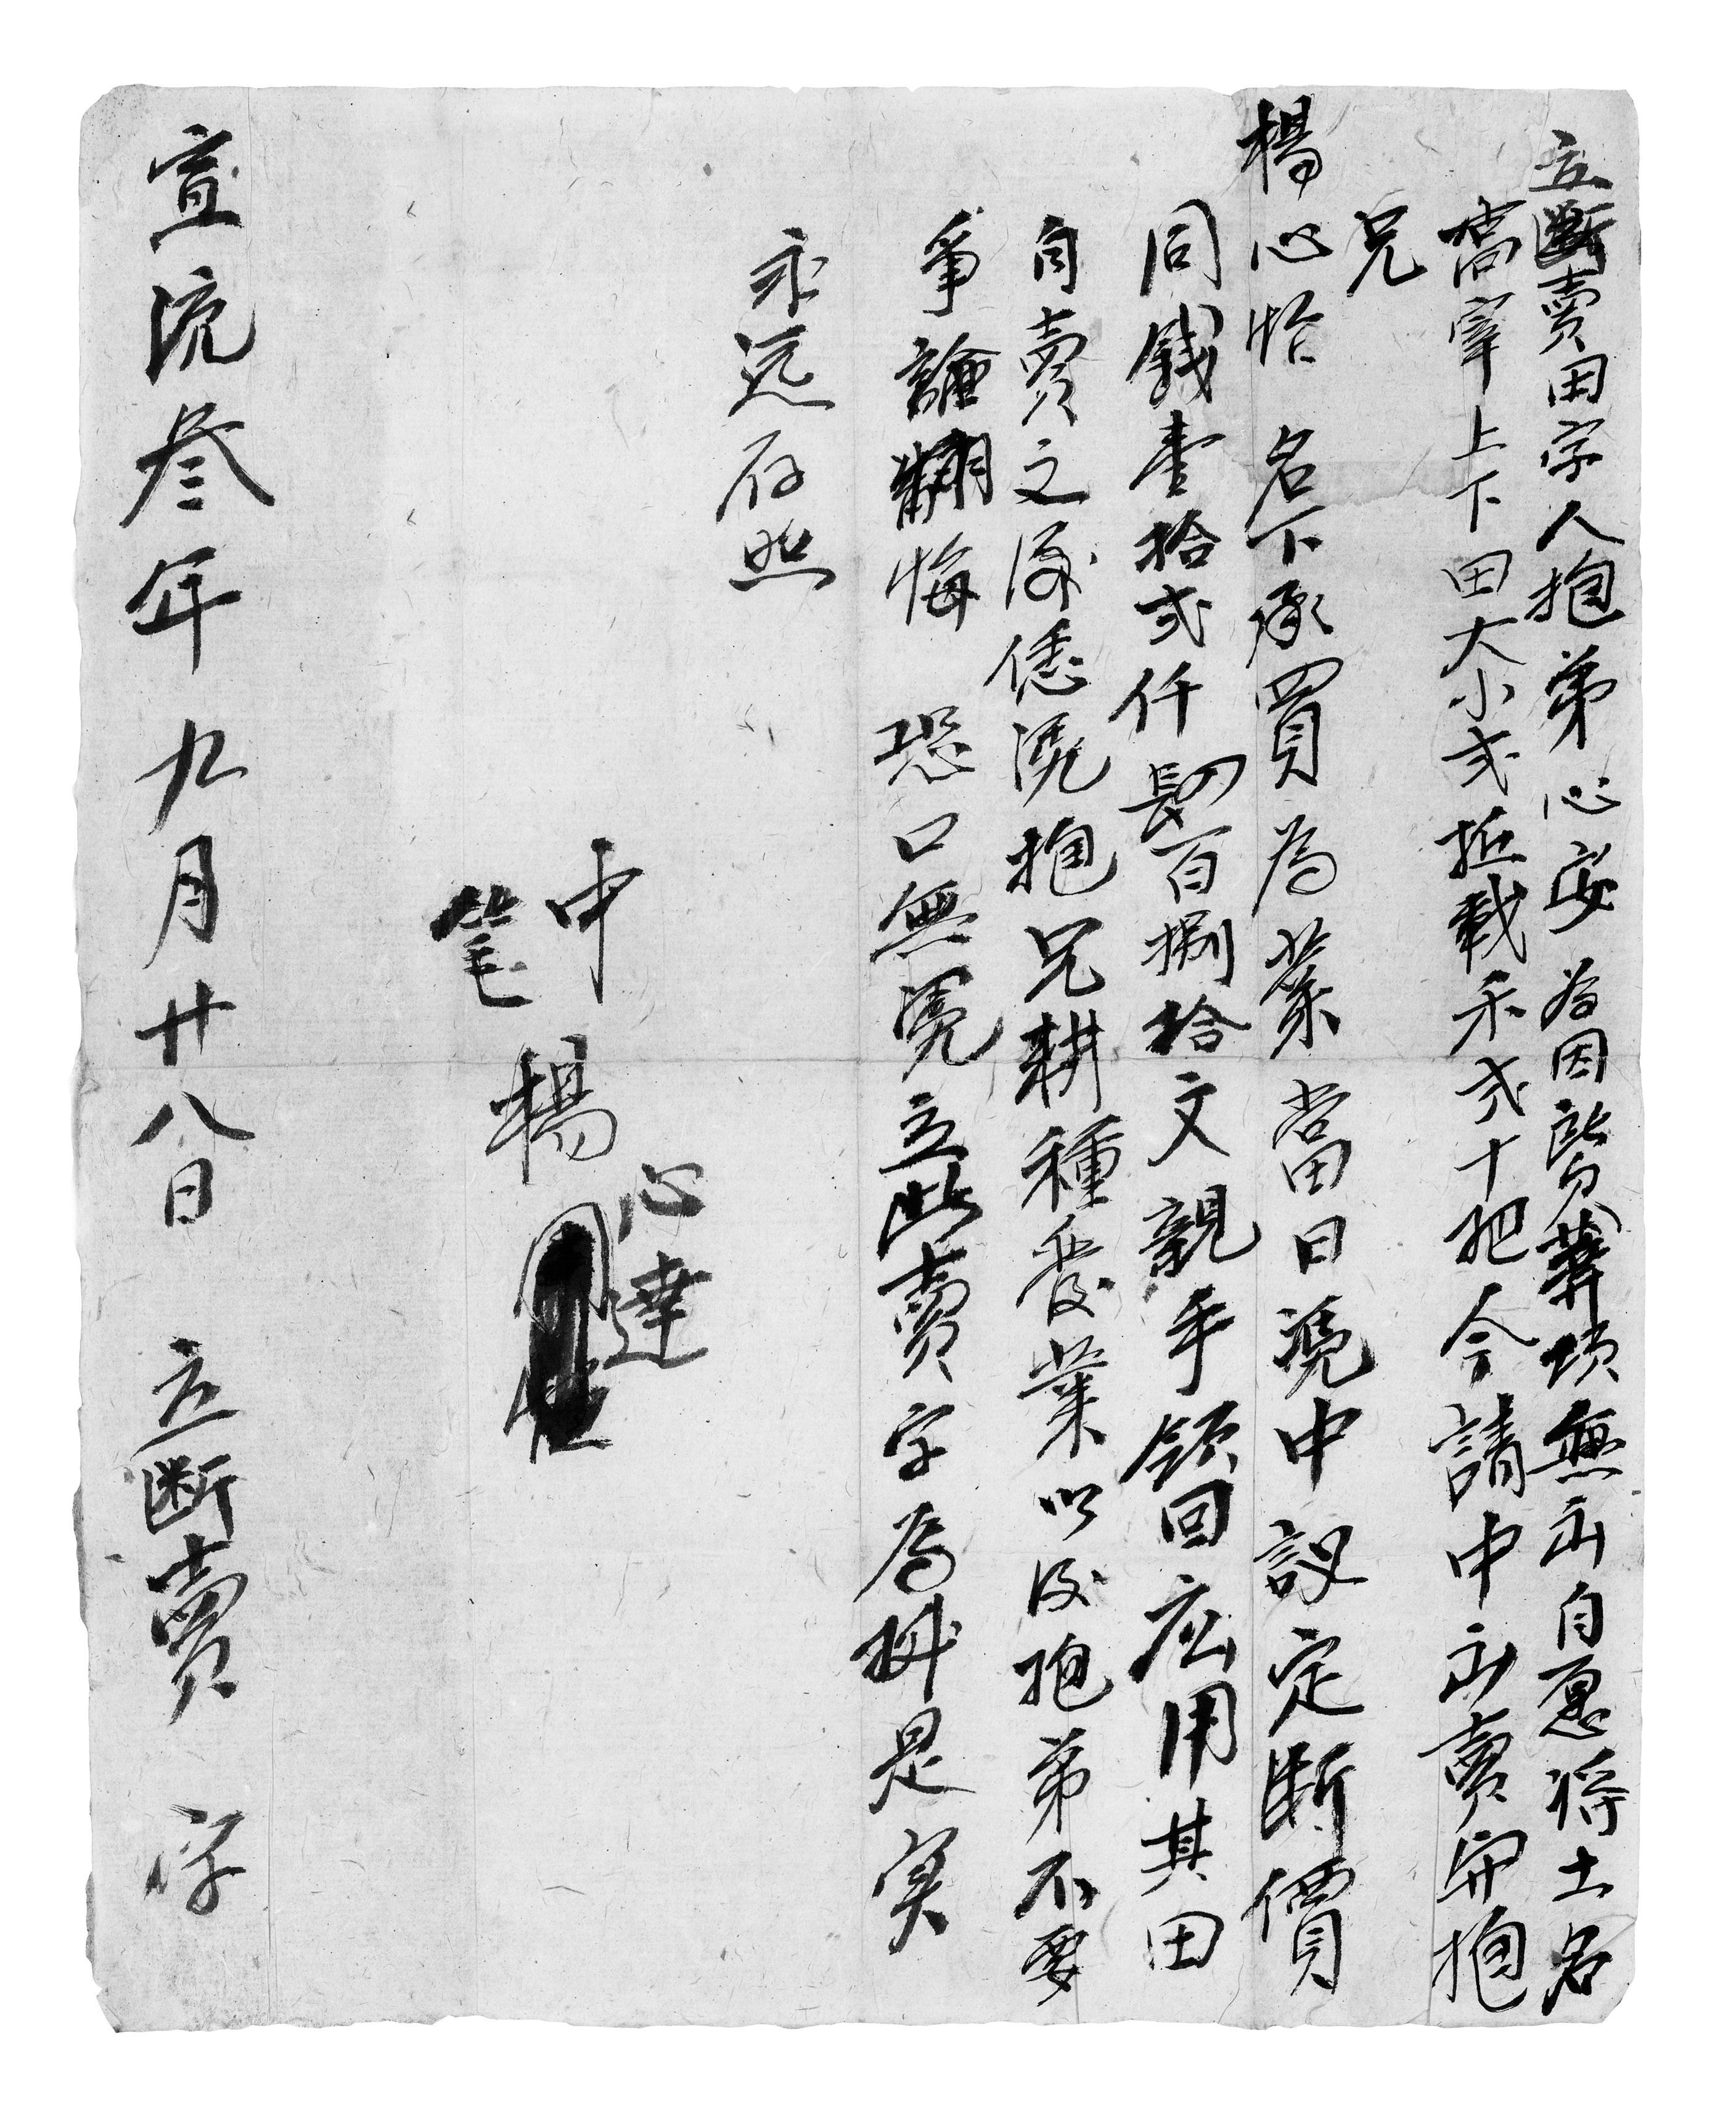 立斷賣田字人抱弟心安為因貲葬墳無出自愿将土名
當宰上下田大小弍坵載禾弍十把今請中出賣與抱
兄
楊心怡名下承買為業當日憑中議定断價
同錢壹拾弍仟四百捌拾文親手領回応用其田
自賣之後恁凭抱兄耕種發業以後抱弟不要
爭論翻悔恐口無凴立此賣字為拠是实
永远存照
中 心達
笔 楊
宣統叁年九月廿八日立断賣字